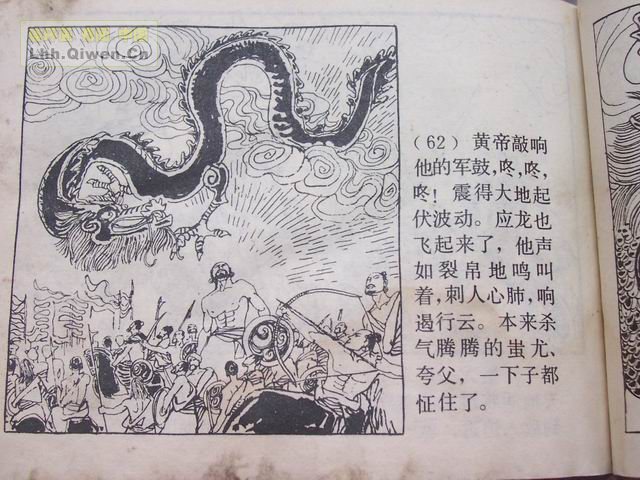 Lhh.Qiwen.Cn
(62) 黄帝敲响
他的军鼓,咚,咚,
咚！震得大地起
伏波动。应龙也
飞起来了，他声
如裂帛地鸣叫
着,刺人心肺,响
遏行云。本来杀
气腾腾的蚩尤、
夸父，一下子都
怔住了。